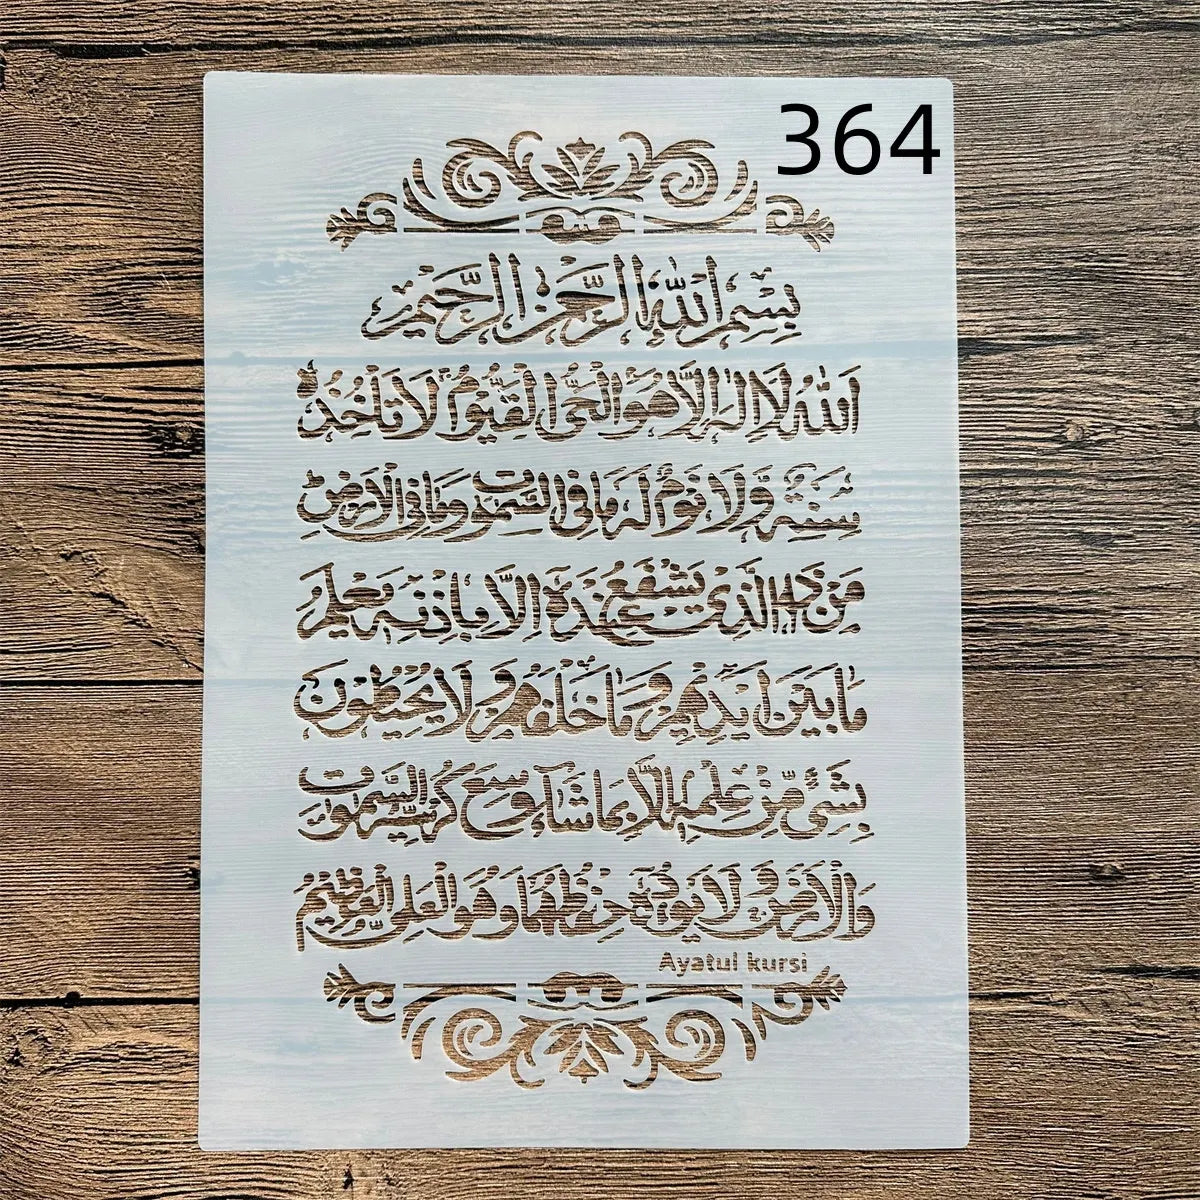 364
بِسْمِ اللّٰهِ الرَّحْمٰنِ الرَّحِيْمِ
اَللّٰهُ لَا اِلٰهَ اِلَّا هُوَ الْحَيُّ الْقَيُّوْمُ لَا تَاْخُذُهٗ
سِنَةٌ وَّلَا نَوْمٌ لَهٗ مَا فِي السَّمٰوٰتِ وَمَا فِي الْاَرْضِ
مَنْ ذَا الَّذِيْ يَشْفَعُ عِنْدَهٗ اِلَّا بِاِذْنِهٖ يَعْلَمُ
مَا بَيْنَ اَيْدِيْهِمْ وَمَا خَلْفَهُمْ وَلَا يُحِيْطُوْنَ
بِشَيْءٍ مِّنْ عِلْمِهٖ اِلَّا بِمَا شَآءَ وَسِعَ كُرْسِيُّهُ السَّمٰوٰتِ
وَالْاَرْضَ وَلَا يَئُوْدُهٗ حِفْظُهُمَا وَهُوَ الْعَلِيُّ الْعَظِيْمُ
Ayatul kursi